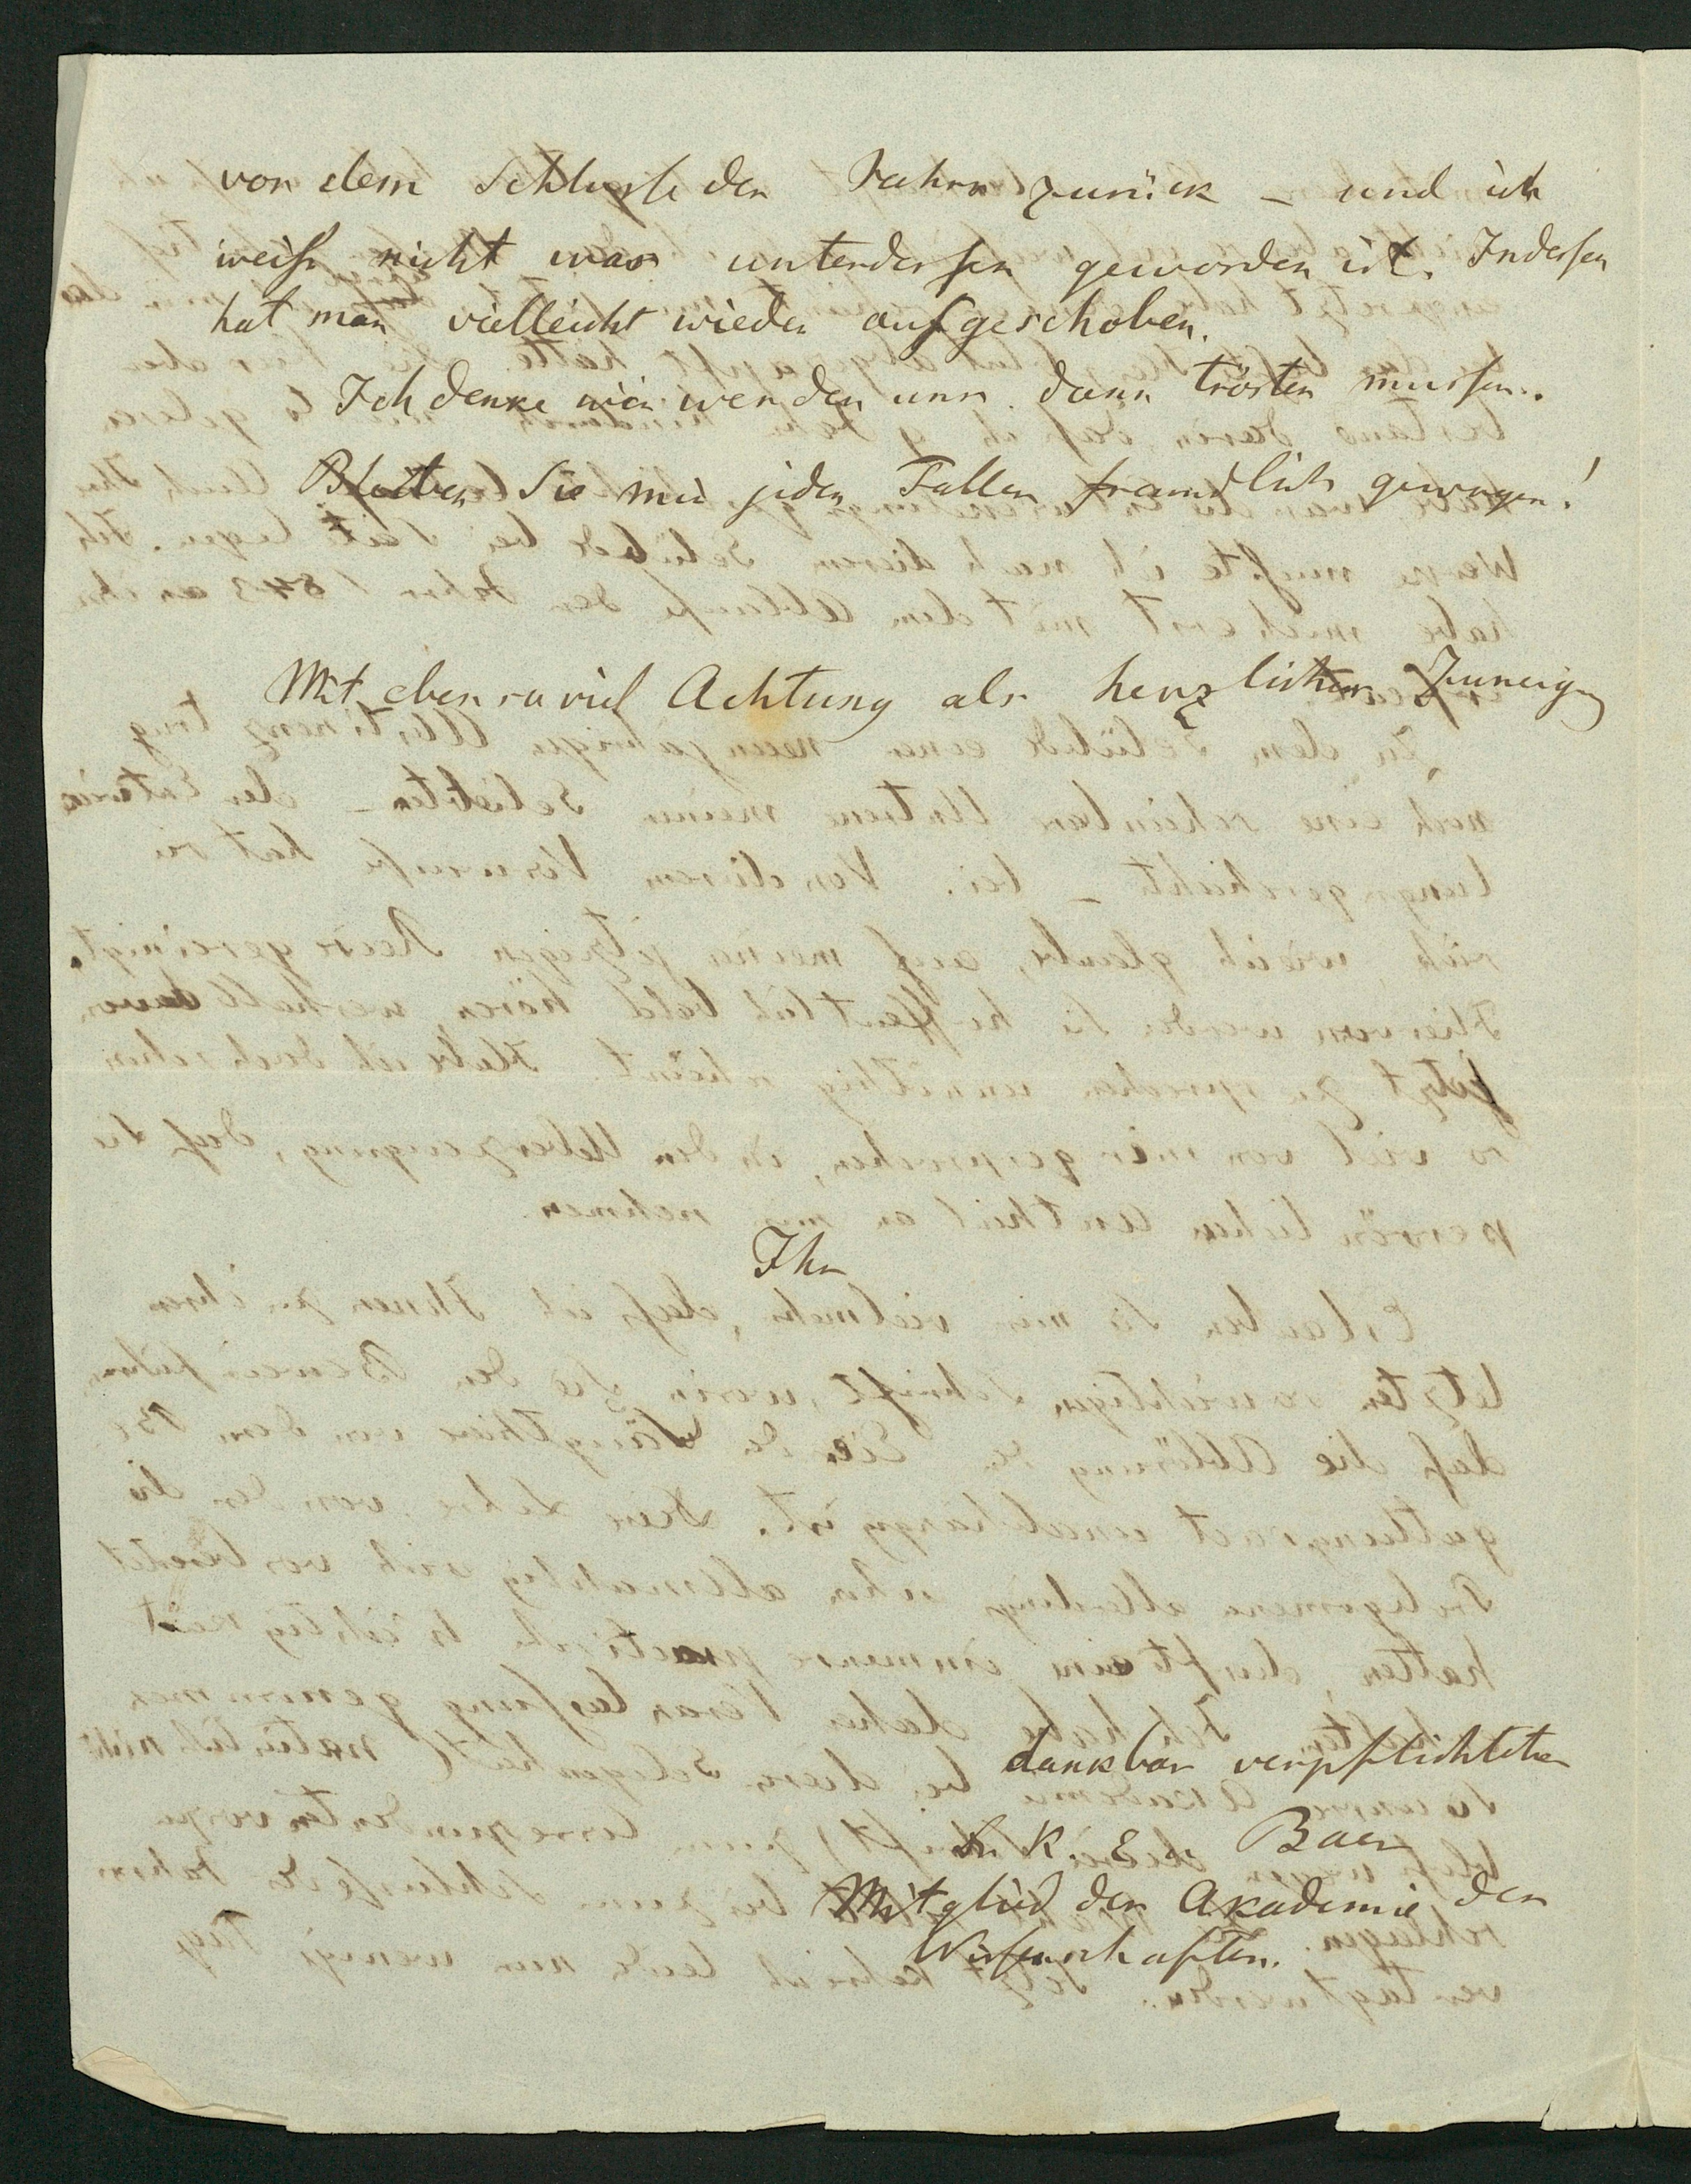 von dem Schlusse des Jahres zurück – und ich
weiß nicht was unterdessen geworden ist. Indessen
hat man vielleicht wieder aufgeschoben.
Ich denke wir werden uns dann trösten müssen.
Bleiben Sie mir jeden Falles freundlich gewogen!
Mit eben so viel Achtung als herzlicher Zuneigung
Ihr
dankbar verpflichteter
Dr. K. E. v. Baer
Mitglied der Akademie der
Wissenschaften.